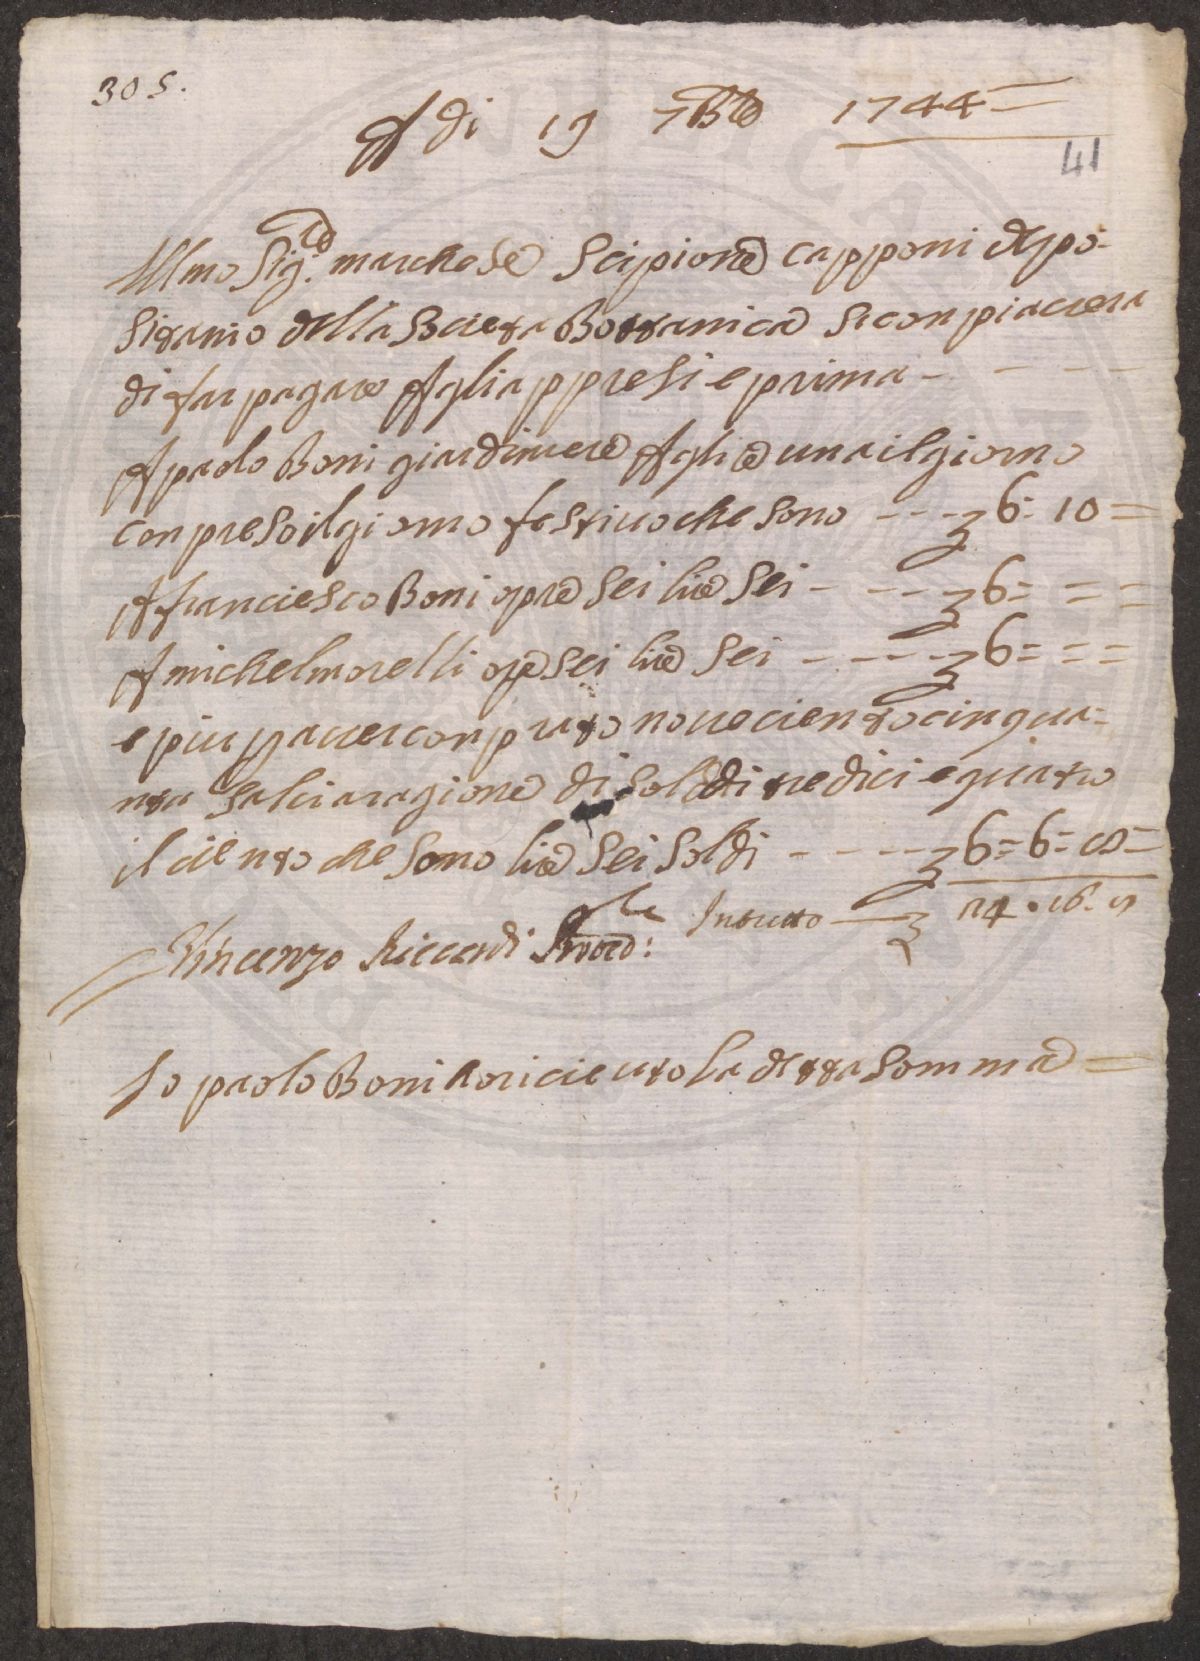 305.
A di 19 7Bre 1744=
41
Illmo Sig.re marchese Scipione capponi depo-
sitario della Societa Bottanica Si conpiacera
di far pagare A gli appresi e prima - - - - -
A paolo Boni giardiniere A glie una il giorno
conpreso il giorno festivo che sono - - - 6: 10 =
A franciesco Boni opre sei lire Sei - - - - 6= = =
A michel morelli opre sei lire sei - - - - - 6= = =
e piu p aver conprato novecientocinqua=
nta salci a ragione di soldi tredici e quatro
il ciento che sono lire sei soldi - - - - - 6= 6= 8=
In tutto 24. 16. 8
Vincenzo Riccardi Provved:re
Io paolo Boni ho ricieuto la detta somma =